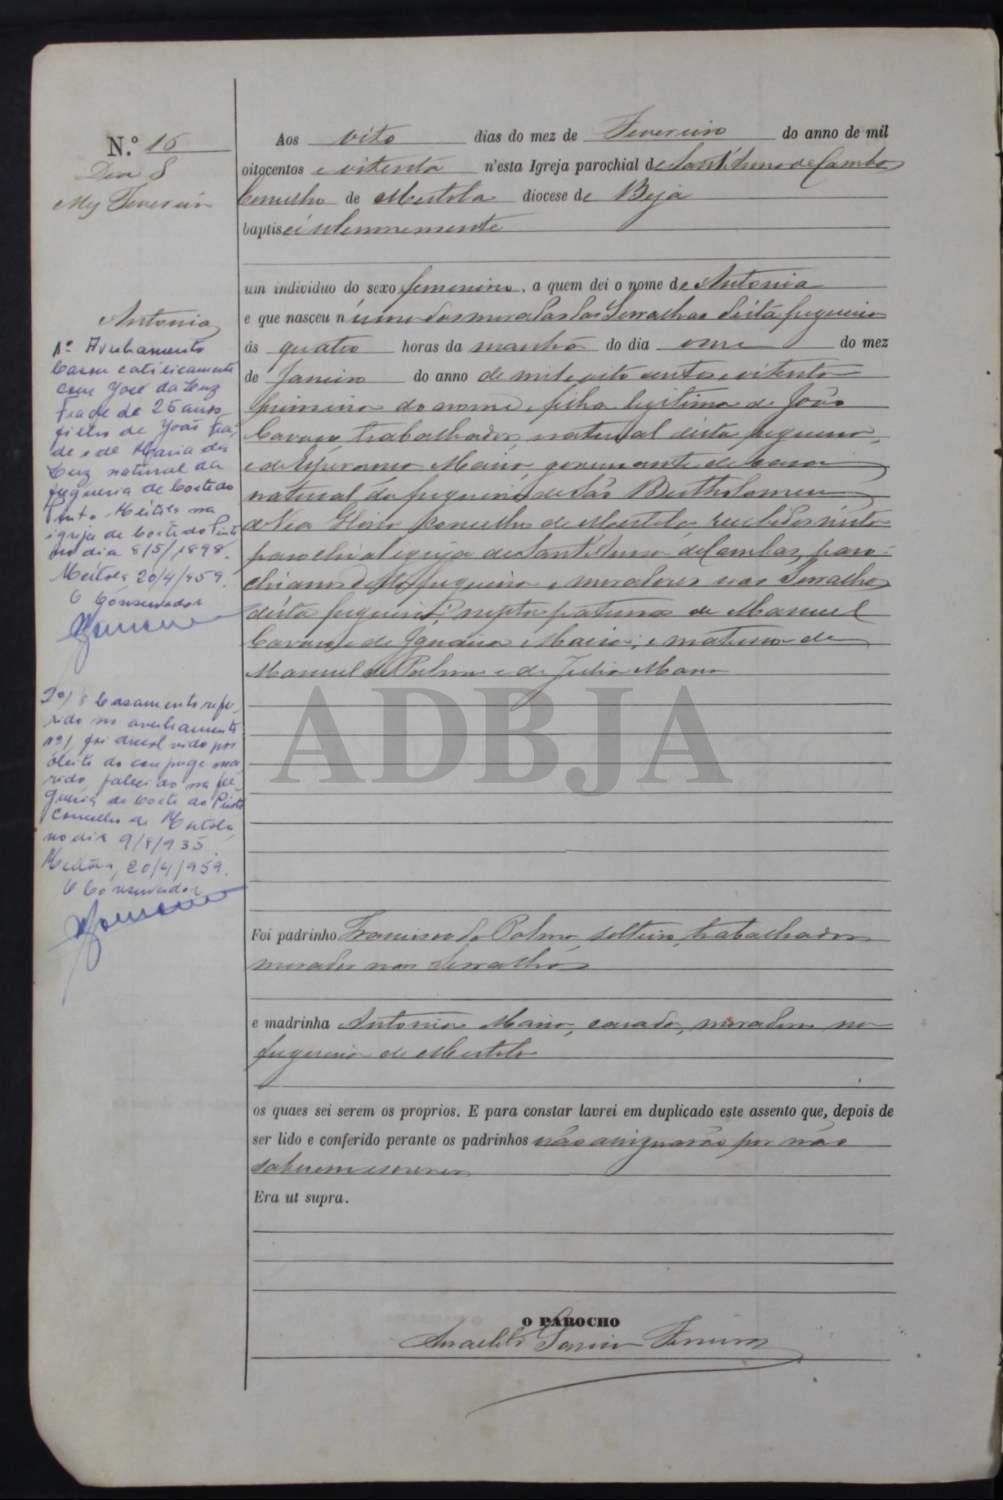 N.º 16
Dia 8
Mez Fevereiro
Antonia
1º Averbamento
Casou catolicamente
com José da Luz
Frade de 25 anos,
filho de João Fra-
de e de Maria da
Luz natural da
freguesia de Corte do
Pinto Mertola na
igreja de Corte do Pinto
no dia 8/5/1898.
Mertola 20/4/959.
O Conservador
2º) O Casamento refe-
rido no averbamento
nº 1, foi dissolvido por
óbito do conjuge ma-
rido, falecido na fre-
guesia de Corte do Pinto
Concelho de Mertola,
no dia 9/8/935
Mertola, 20/4/959.
O Conservador
Aos oito dias do mez de Fevereiro do anno de mil
oitocentos e oitenta n'esta Igreja parochial de Sant'Anna de Cambas
Concelho de Mertola diocese de Beja
baptisei solemnemente
um individuo do sexo femenino, a quem dei o nome de Antonia
e que nasceu n'uma das moradas das Serralhas d'esta freguesia
ás quatro horas da manhã do dia onze do mez
de Janeiro do anno de mil e oito centos e oitenta
primeira do nome, filha legitima de João
trabalhador, natural desta freguesia,
e de Maria, governante de casa
natural da freguesia de São Bertholomeu
de Via Gloria Concelho de Mertola recebidos n'esta
parochial egreja de Sant'Anna de Cambas, paro-
chianos d'esta freguesia e moradores nas Serralhas
desta freguesia; nepta paterna de Manuel
e de Ignacia Maria; e materna de
Manuel de Palma e de Julia Maria
ADBJA
Foi padrinho Francisco de Palma, solteiro, trabalhador
morador nas Serralhas
e madrinha Antonia Maria, casada, moradora na
freguesia de Mertola
os quaes sei serem os proprios. E para constar lavrei em duplicado este assento que, depois de
ser lido e conferido perante os padrinhos não assignarão por não
saberem escrever
Era ut supra.
O PAROCHO